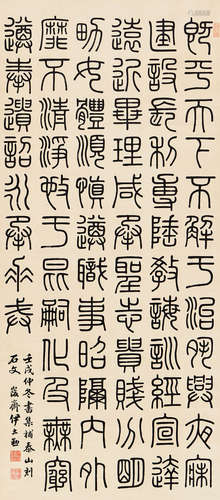 既平天下不解于治夙興夜寐
建設長利專隆教誨訓經宣達
遠近畢理咸承聖志貴賤分明
男女體順慎遵職事昭隔內外
靡不清淨施于昆嗣化及無窮
遵奉遺詔永承重戒
壬戌仲冬書集補泰山刻
石文 峻齋伊立勳